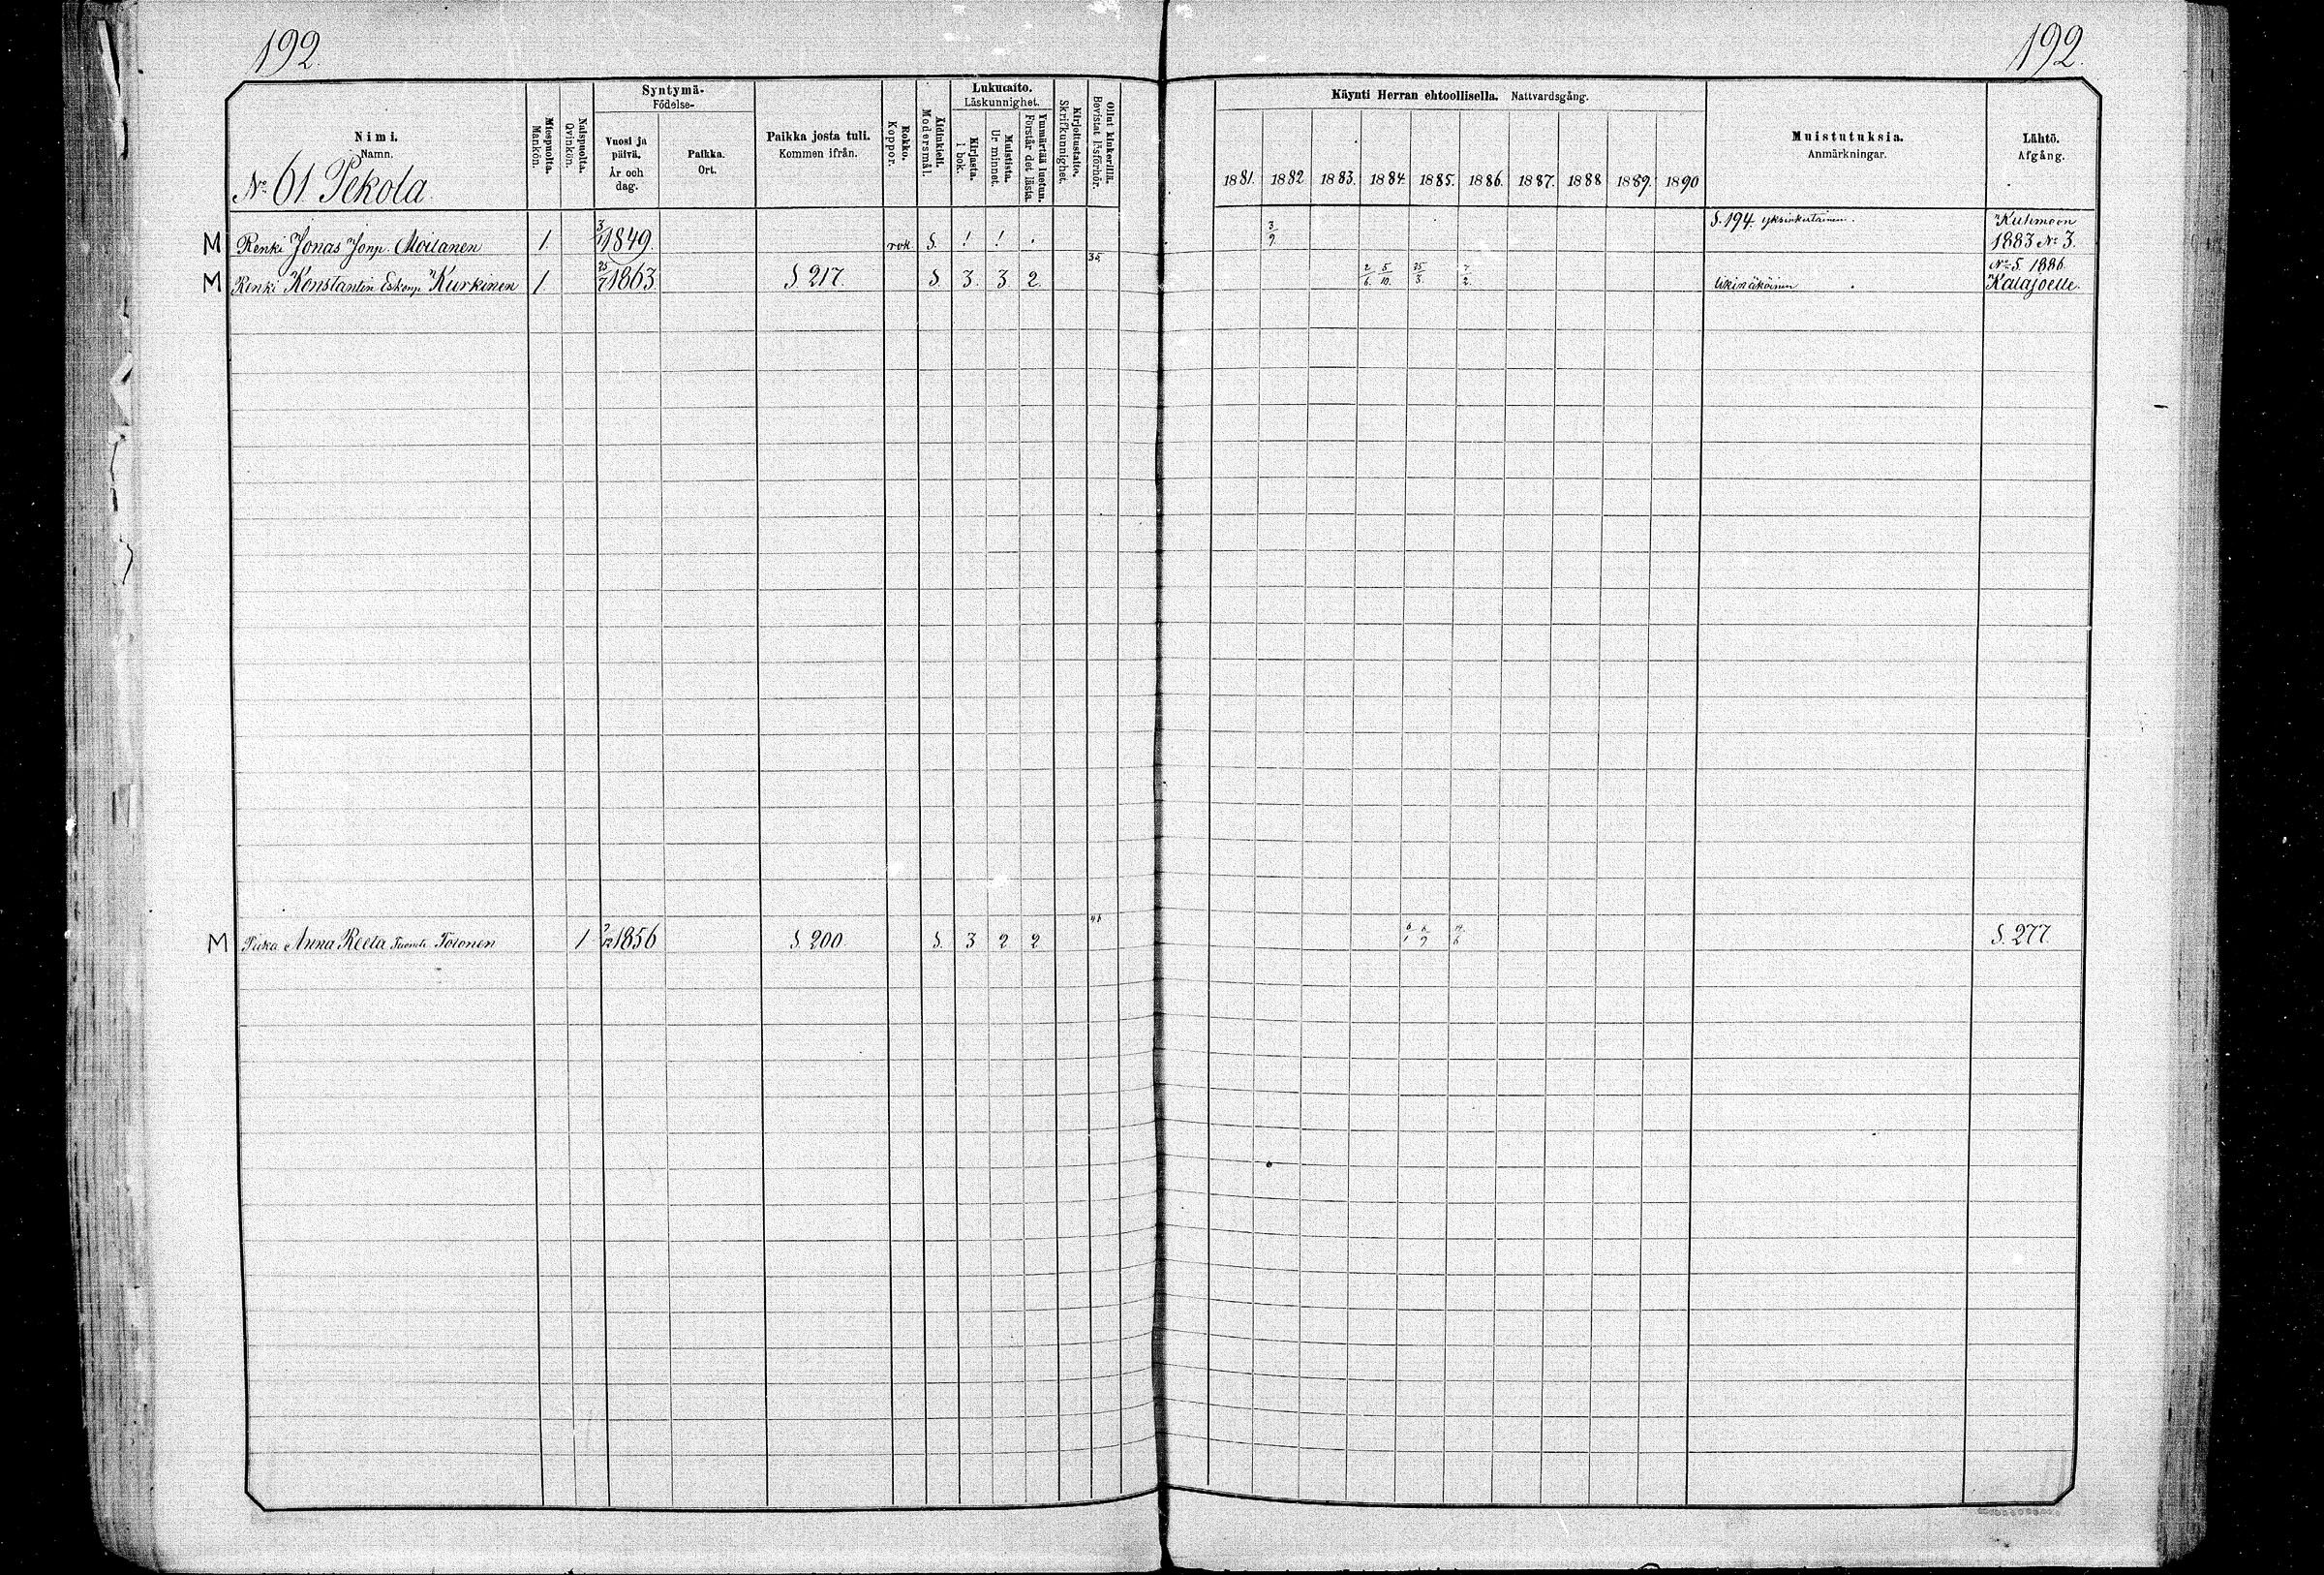 192.
192.
Nimi.
Namn.
Miespuolta.
Mankön.
Naispuolta.
Qvinkön.
Syntymä-
Födelse-
Vuosi ja
päivä.
År och
dag.
Paikka.
Ort.
Paikka josta tuli.
Kommen ifrån.
Rokko.
Koppor.
Äidinkieli.
Modersmål.
Lukutaito.
Läskunnighet.
Kirjasta.
I bok.
Muistista.
Ur minnet.
Ymmärtää luetun.
Förstår det lästa
Kirjoitustaito.
Skrifkunnighet.
Ollut kinkerillä.
Bevistat l:sförhör.
Käynti Herran ehtoollisella. Nattvardsgång.
1881. 1882 1883. 1884 1885. 1886. 1887. 1888 1889. 1890
Muistutuksia.
Anmärkningar.
Lähtö.
Afgång.
No 61 Pekola
M Renki Jonas Jonp. Moilanen 1. 3/1 1849. rok. S. ! ! . 3/9 S. 194. yksinkertainen. Kuhmoon
1883 No 3.
M Renki Konstantin Eskonp Kurkinen 1. 25/7 1863 S. 217. S. 3. 3. 2. 35 2/6. 5/10. 25/3. 7/2. Likinäköinen No 5. 1886
Kalajoelle.
M Piika Anna Reeta Tuomt. Tolonen 1 1856 S. 200 S. 3 2 2 S. 277.